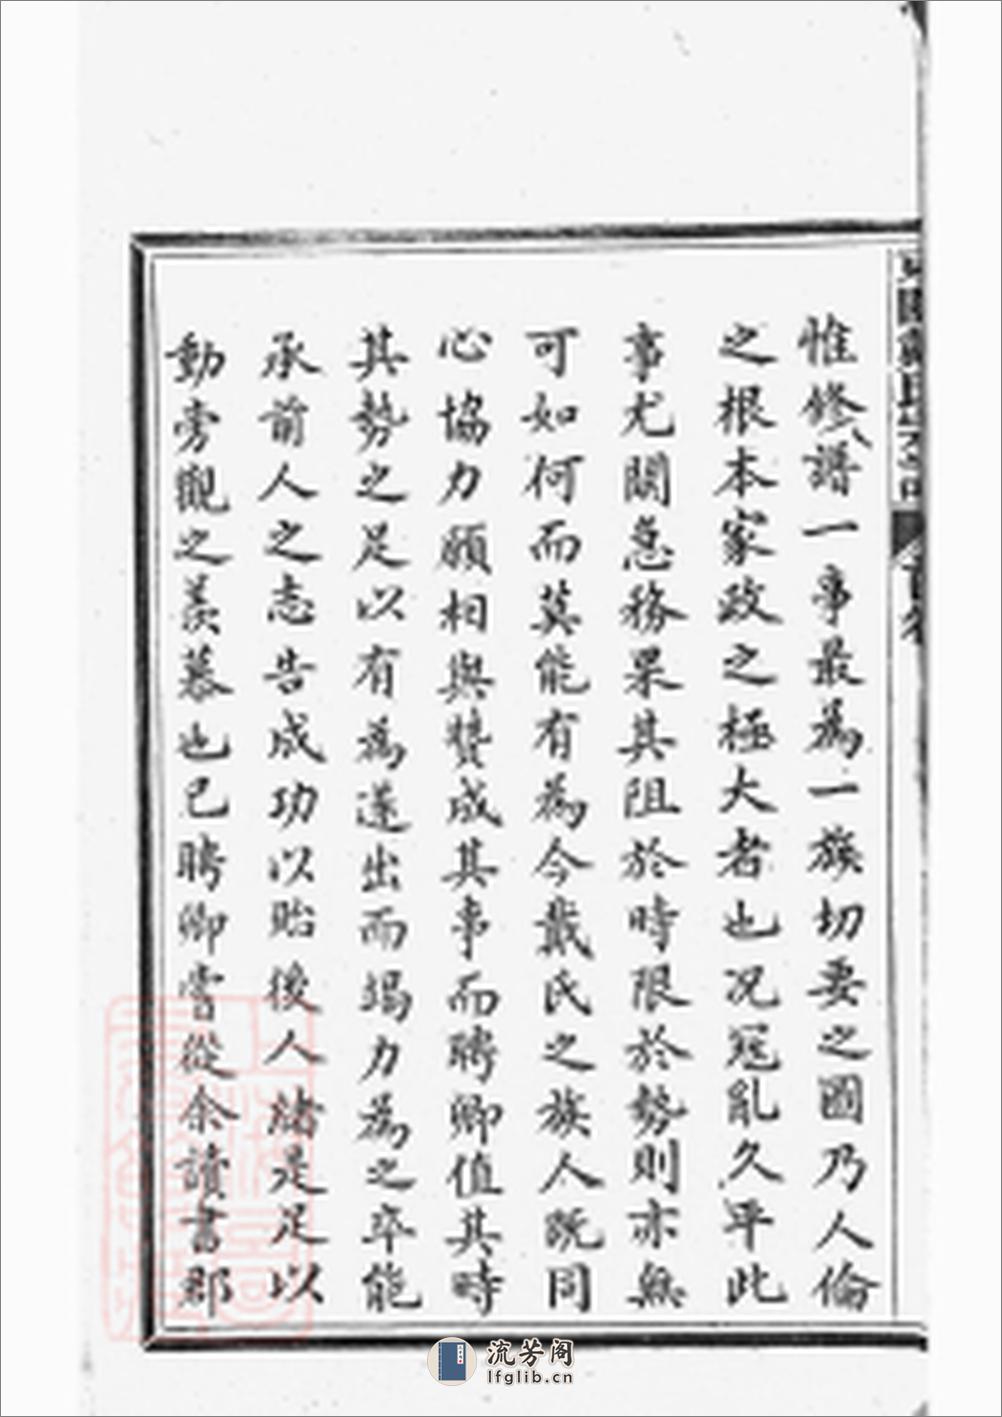 惟修譜一事最為一族切要之圖乃人倫
之根本家政之極大者也况冦亂久平此
事尤關急務果其阻於時限於勢則亦無
可如何而莫能有為今戴氏之族人既同
心協力願相與贊成其事而聘卿值其時
其勢之足以有為遂出而竭力為之卒能
承前人之志告成功以貽後人緒是足以
動旁觀之羨慕也已聘卿嘗從余讀書郡
流芳阁
lfglib.cn